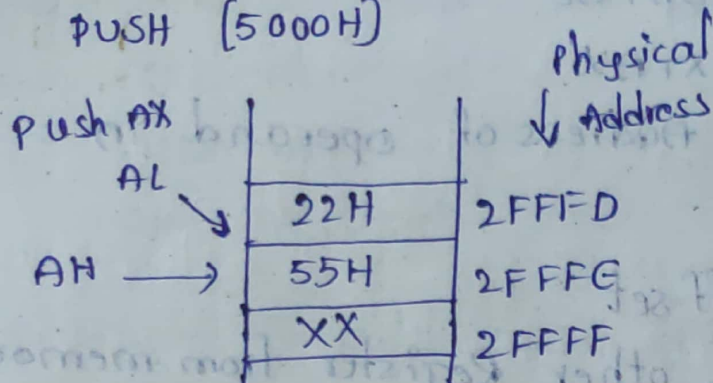 PUSH [5000H]
Physical
Address
Push AX
AL
22H 2FFFD
AH 55H 2FFFE
XX 2FFFF